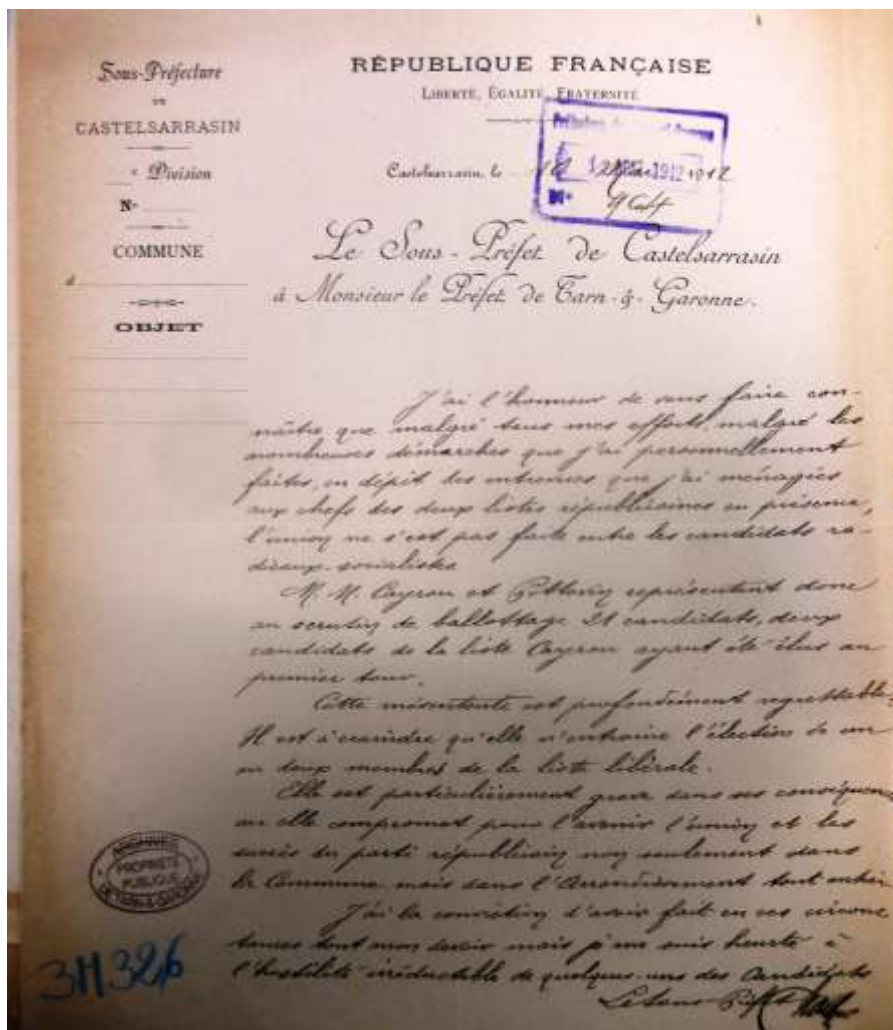 Sous-Préfecture
DE
CASTELSARRASIN
e Division
N°
COMMUNE
d
OBJET
RÉPUBLIQUE FRANÇAISE
LIBERTÉ, EGALITÉ, FRATERNITÉ
Castelsarrasin, le 1912
1912
N°
Le Sous-Préfet de Castelsarrasin
à Monsieur le Préfet de Tarn-&-Garonne.
J'ai l'honneur de vous faire con-
naître que malgré tous mes efforts, malgré les
nombreuses démarches que j'ai personnellement
faites, en dépit des entrevues que j'ai ménagées
aux chefs des deux listes républicaines en présence,
l'union ne s'est pas faite entre les candidats ra-
dicaux-socialistes
M. M. Cayrou et représentent donc
au scrutin de ballottage 21 candidats, deux
candidats de la liste Cayrou ayant été élus au
premier tour.
Cette mésentente est profondément regrettable.
Il est à craindre qu'elle n'entraine l'élection de un
ou deux membres de la liste libérale.
Elle est particulièrement grave dans ses conséquences
car elle compromet pour l'avenir l'union et les
succès du parti républicain non seulement dans
la Commune mais dans l'Arrondissement tout entier
J'ai la conviction d'avoir fait en ces circons
tances tout mon devoir mais je me suis heurté à
l'hostilité irréductible de quelques-uns des Candidats
Le Sous-Préfet
ARCHIVES
PROPRIÉTÉ
PUBLIQUE
DE TARN-&-GARONNE
3M326